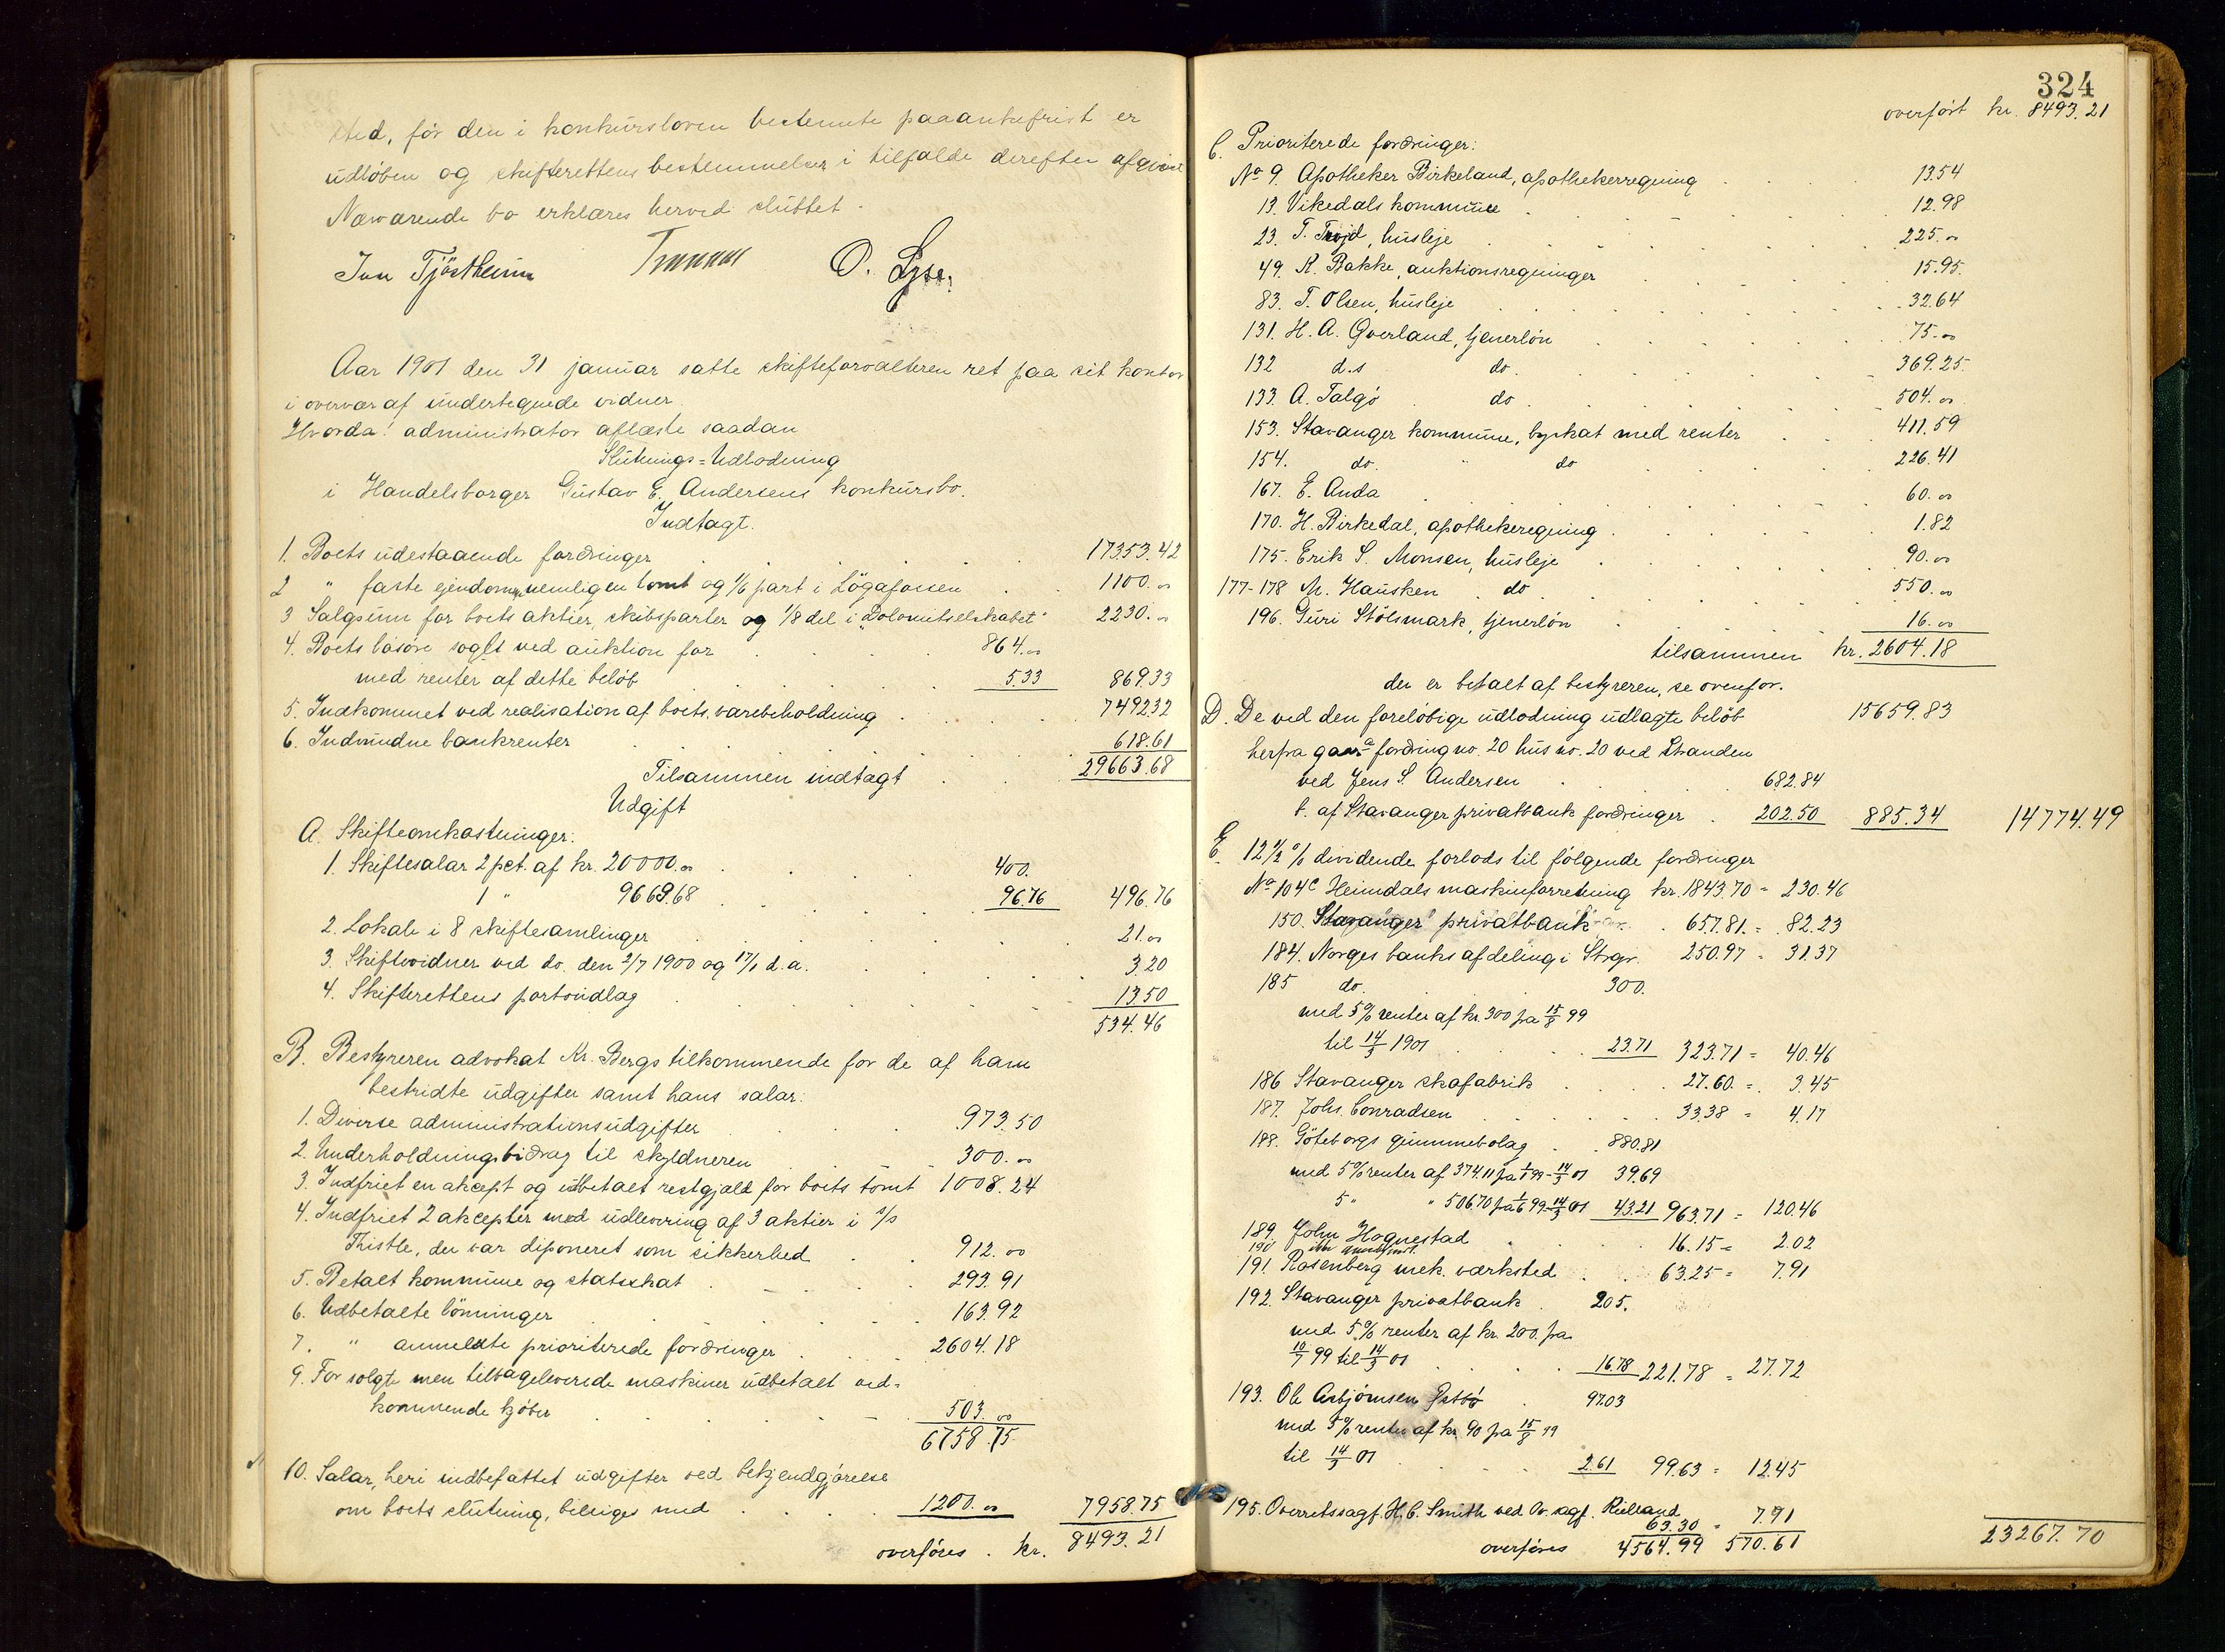 sted, før den i konkursloven bestemte paaankefrist er
udløben og skifterettens bestemmelser i tilfælde derefter afgivne
Nærværende bo erklæres herved sluttet.
Jan Tjöstheim O. Lyse.
Aar 1901 den 31 januar satte skifteforvalteren ret paa sit kontor
i overvær af undertegnede vidner.
Hvorda: administrator aflæste saadan
Slutnings=Udlodning
i Handelsborger Gustav E. Andersens konkursbo.
Indtagt.
1. Boets udestaaende fordringer 17353.42
2 " faste eiendom, nemligen tomt og 1/6 part i Lögafossen 1100.00
3 Salgsum for boets aktier, skibsparter og 1/8 del i "Dolomitselskabet" 2230.00
4. Boets løsøre solgt ved auktion for 864.00
med renter af dette beløb 5.33 869.33
5. Indkommet ved realisation af boets varebeholdning 7492.32
6. Indvundne bankrenter 618.61
Tilsammen indtagt 29663.68
Udgift
A. Skifteomkostninger:
1. Skiftesalar 2 pct. af kr. 20000.00 400.
1 " 9663.68 96.76 496.76
2. Lokale i 8 skiftesamlinger 21.00
3. Skiftevidner ved do. den 2/7 1900 og 17/1 d.a. 3.20
4. Skifterettens portoudlag 13.50
534.46
B. Bestyreren advokat Kr. Bergs tilkommende for de af ham
bestridte udgifter samt hans salar:
1. Diverse administrationsudgifter 973.50
2. Underholdningsbidrag til skyldneren 300.00
3. Indfriet en akcept og udbetalt restgjæld for boets tomt 1008.24
4. Indfriet 2 akcepter mod udlevering af 3 aktier i a/s
Thistle, der var diponeret som sikkerhed 912.00
5. Betalt kommune og statsskat 293.91
6. Udbetalte lönninger 163.92
7. " anmeldte prioriterede fordringer 2604.18
9. For solgte men tilbageleverede maskiner udbetalt ved-
kommende kjøber 503.00
6758.75
10. Salar, heri indbefattet udgifter ved bekjendgjørelse
om boets slutning, billiges med 1200.00 7958.75
overføres kr. 8493.21
324
overført kr. 8493.21
C. Prioriterede fordringer:
No 9. Apotheker Birkeland, apothekerregning 13.54
13. Vikedals kommune 12.98
23. T. Trojd, husleje 225.00
49. K. Bakke, auktionsregninger 15.95.
83. T. Olsen, husleje 32.64
131. H. A. Qverland, tjenerløn 75.00
132 d.s do. 369.25.
133. A. Talgö do 504.00
153. Stavanger kommune, byskat med renter 411.59
154. do. " do 226.41
167. E. Anda 60.00
170. H. Birkedal, apothekeregning 1.82
175. Erik S. Monsen, husleje 90.00
177-178 M. Hausken do 550.00
196. Guri Stölsmark, tjenerlön 16.00
tilsammen kr. 2604.18
der er betalt af bestyreren, se ovenfor.
D. De ved den foreløbige udlodning udlagte beløb 15659.83
herfra gaar a fordring no. 20 hus no. 20 ved Stranden
ved Jens S. Andersen 682.84
b. af Stavanger privatbank fordringer 202.50 885.34 14774.49
E. 12 1/2 % dividende forlods til følgende fordringer
No 104c Heimdals maskinforretning kr. 1843.70 = 230.46
150. Stavanger privatbank 657.81. = 82.23
184. Norges banks afdeling i Stvgr. 250.97 = 31.37
185 do. 300.
med 5% renter af kr. 300 fra 15/8 99
til 14/3 1901 23.71 323.71 = 40.46
186 Stavanger skofabrik 27.60. = 3.45
187. Johs. Conradsen 33.38 = 4.17
188. Göteborgs gummebolag 880.81
med 5% renter af 374.11 fra 1/2 99 - 14/3 01 39.69
5 " " 506.70 fra 1/6 99 - 14/3 01 43.21 963.71 = 120.46
189. John Hognestad 16.15 = 2.02
190 ikke
191 Rosenberg mek. værksted 63.25 = 7.91
192. Stavanger privatbank 205.
med 5% renter af kr. 200. fra
10/7 99 til 14/3 01 16.78 221.78 = 27.72
193. Ole Asbjørnsen 97.03
med 5% renter af kr. 90 fra 15/8 99
til 14/3 01 2.61 99.63 = 12.45
195. Overretssagf. H. C. Smith ved Or. sagf. Rielland
63.30 = 7.91
overføres 4564.99 570.61 23267.70